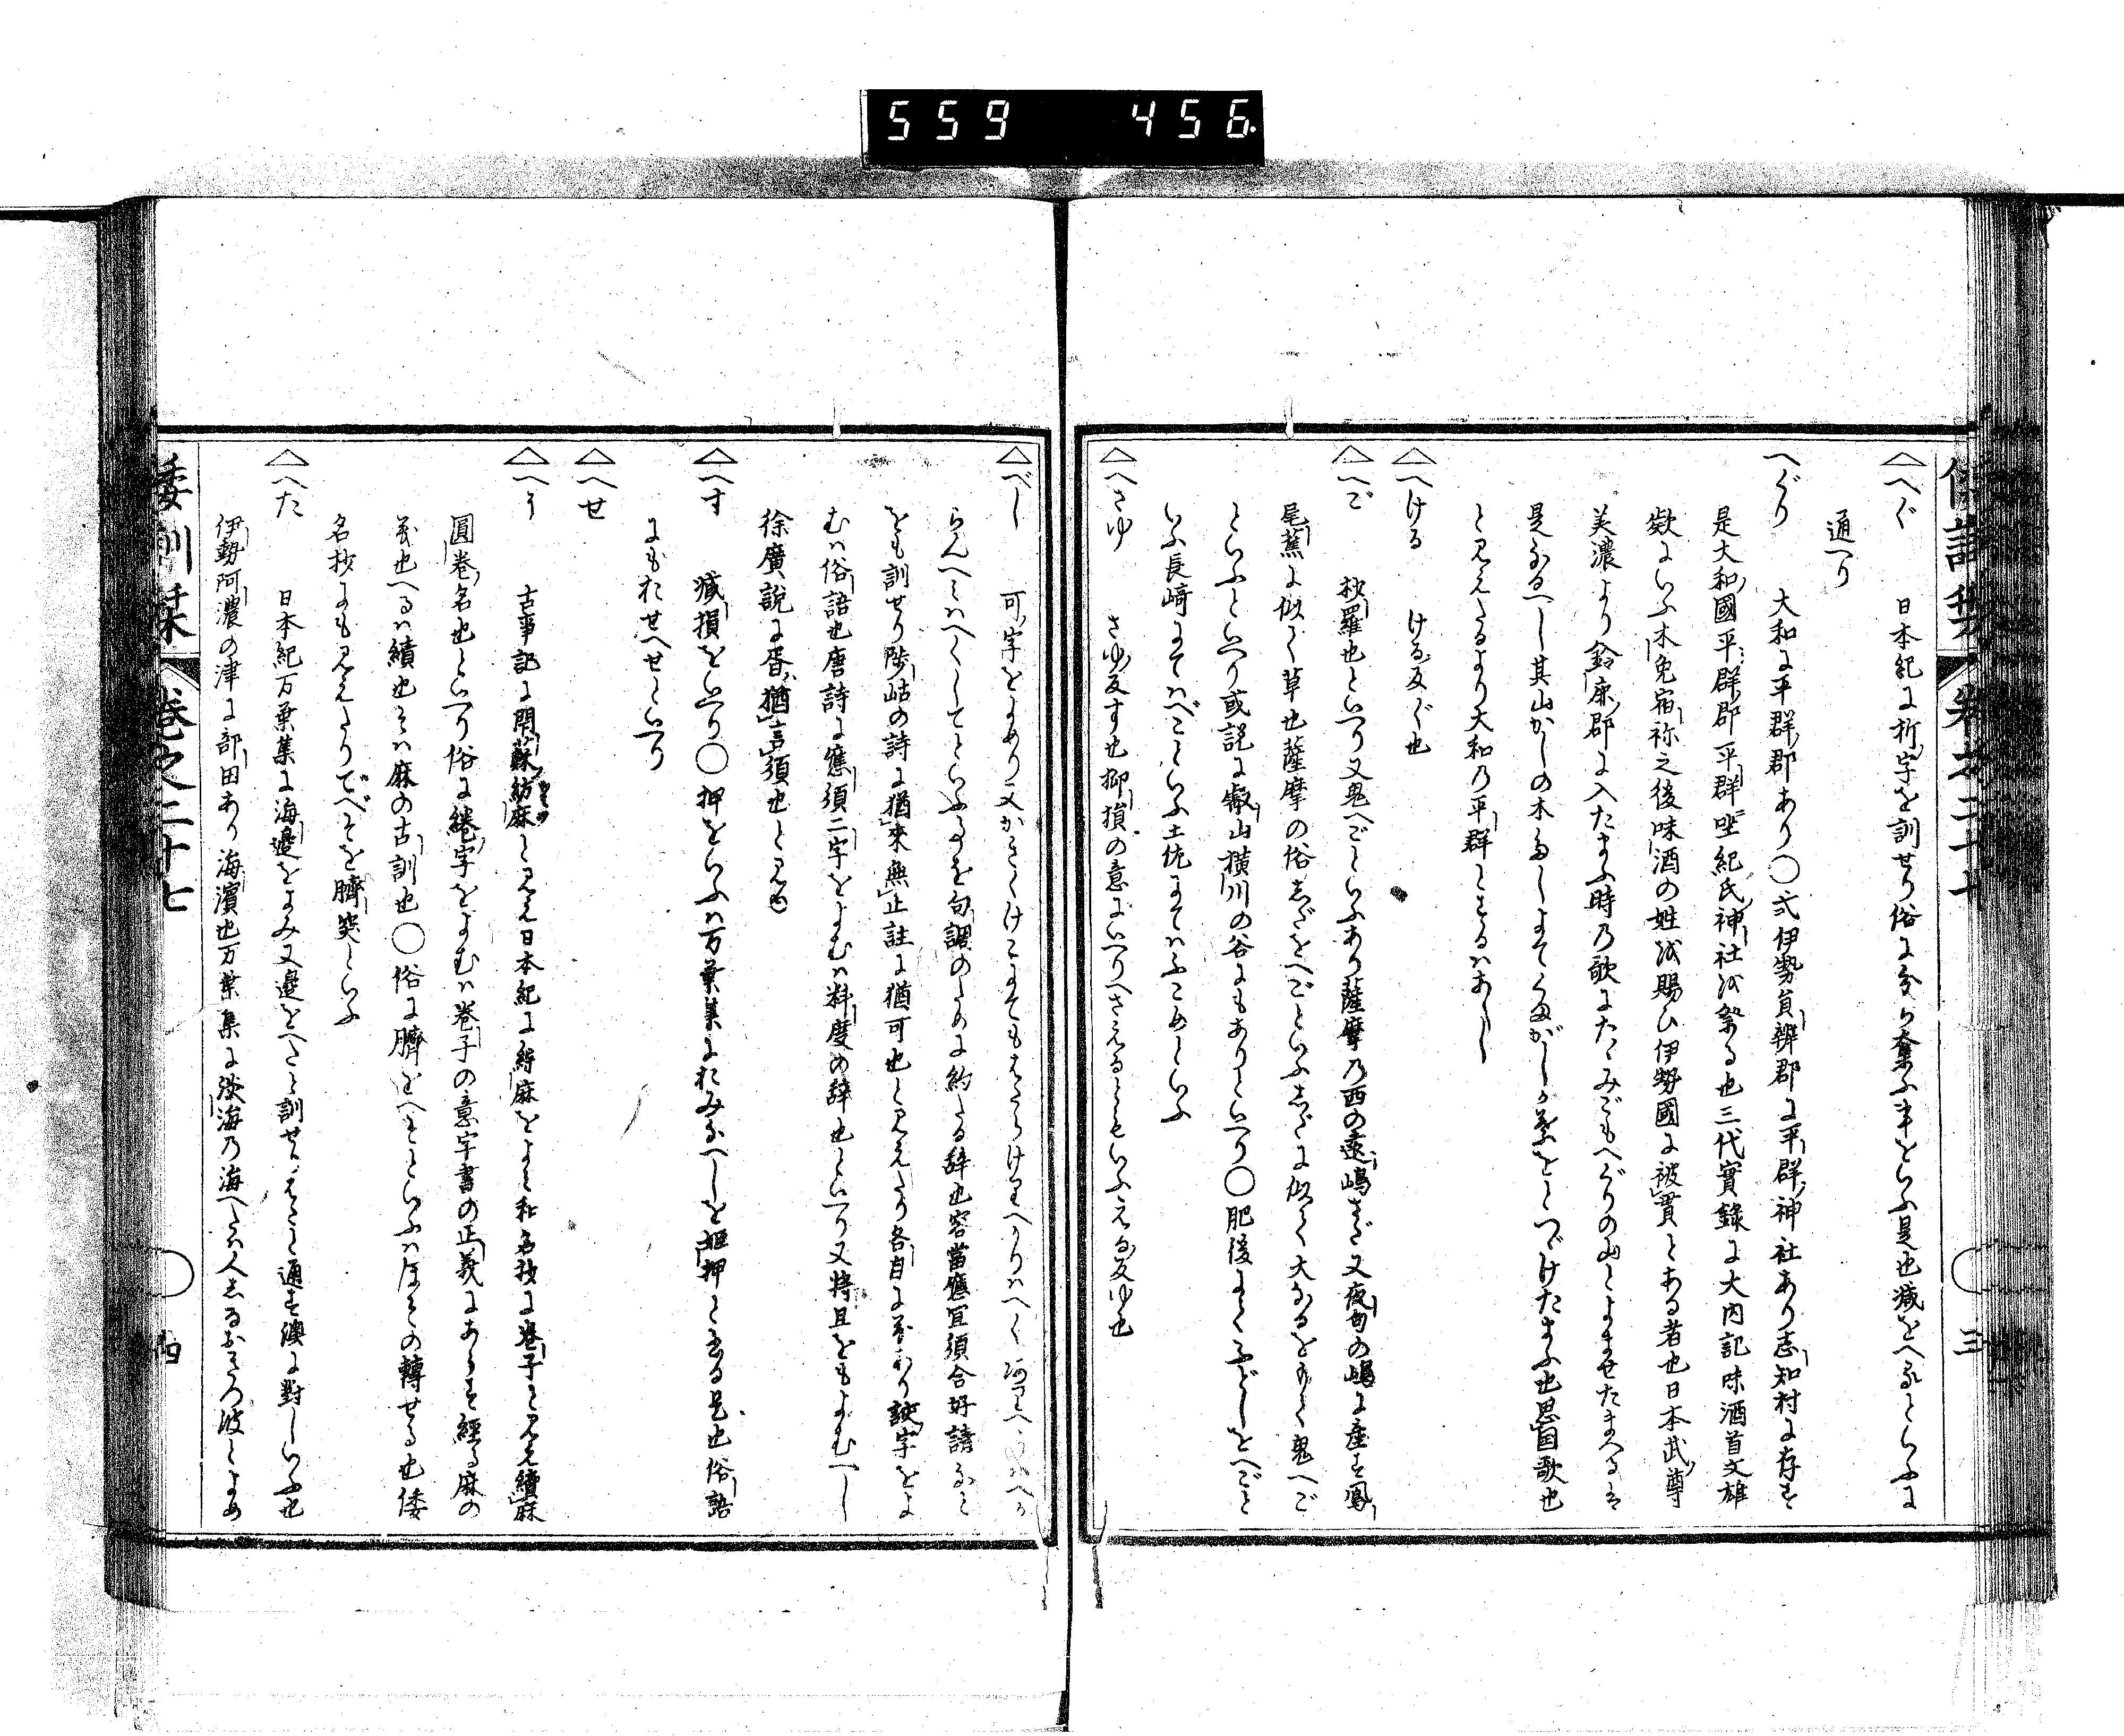 559 456
倭訓栞 卷之二十七 三
へぐ 日本紀に折字を訓せり俗に分ち奪ふ事をいふ是也減をへるといふに
通へり
へぐり 大和に平群郡あり〇式伊勢員辨郡に平群神社あり志知村に存す
是大和國平群郡平群坐紀氏神社を祭る也三代實錄に大内記味酒首文雄
欵にいふ木兔宿祢之後味酒の姓を賜ひ伊勢國に被貫とある者也日本武尊
美濃より鈴鹿郡に入たまふ時乃歌にたゝみごもへぐりの山とよませたまへるは
是なるへし其山かしの木
と見えたるより大和乃平群とするはあし
へける ける反ぐ也
へご 桫羅也といへり又鬼へごといふあり薩摩乃西の遠嶋 又夜句の嶋に產す鳳
尾蕉に似て草也薩摩の俗しだをへごといふしだに似て大なるをもて鬼へご
といふといへり或説に叡山横川の谷にもありといへり〇肥後にてふどしをへごと
いふ長崎にてはべこといふ土佐にてはふこめといふ
へさゆ さゆ反す也抑損の意にいへりへさえるともいふえる反ゆ也
べし 可字をよめり
らんへきはへくしてといふるを句調のために約たる辞也容當應宜須合好請なと
をも訓せり陟岵の詩に猶來無止註に猶可也と見えたり各自に義あり 字をよ
むは俗語也唐詩に應須二字をよむは料度の辞也といへり又將且をもよむへし
徐廣説に胥猶言須也と見ゆ
へす 減損をいへり〇押をいふは万葉集にをみなへしを姫押とかける是也俗語
にもおせへせといへり
へせ
へそ 古事記に閇蘇紡麻と見え日本紀に綜麻をよみ和名抄に卷子と見え續麻
圓卷名也といへり俗に綣字をよむは卷子の意字書の正義にあらす經る麻の
義也へるは績也そは麻の古訓也〇俗に臍をへそといふはほその轉せる也倭
名抄にも見えたりでべそを臍突といふ
へた 日本紀万葉集に海邊をよみ又邊をへたと訓せり はたと通す澳に對しいふ也
伊勢阿濃の津に部田あり海濱也万葉集に淡海乃海へたは人しるおきつ波とよめ
倭訓栞 卷之二十七 四